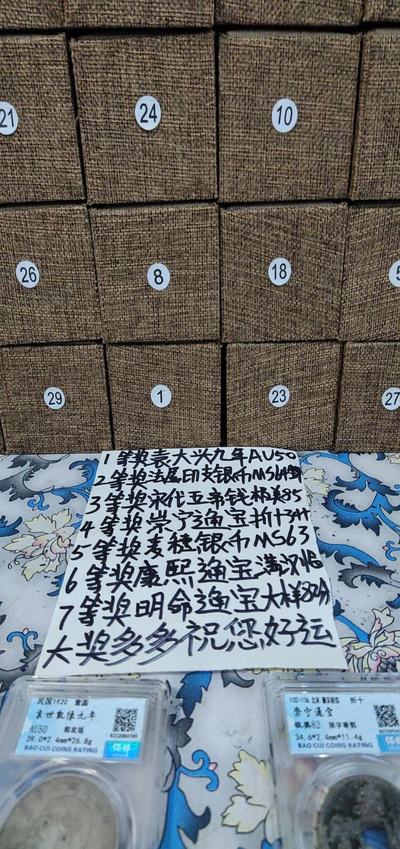 21
24
10
26
8
18
5
29
1
23
27
1等奖袁大头九年AU50
2等奖法属印支银币MS64
3等奖汉代五铢钱极美85
4等奖崇宁通宝折十
5等奖麦穗银币MS63
6等奖康熙通宝满汉临
7等奖明命通宝大样82分
大奖多多祝您好运
民国1920 壹圆
袁世凯像九年
AU50
39.0*2.4mm*26.8g
BAO CUI COINS RATING
折十
崇宁通宝
极美82
34.6*2.4mm*11.4g
BAO CUI COINS RATING